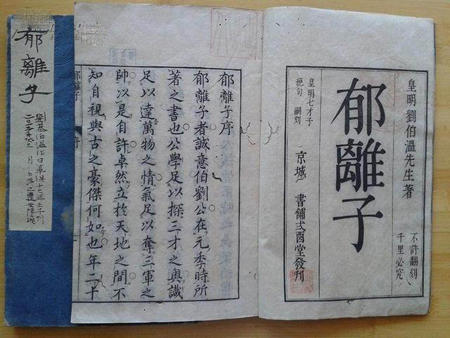 皇明劉伯溫先生著
郁離子
不許翻刻
千里必究
皇明七才子
京城 書鋪式酉堂發刊
郁離子序
郁離子者誠意伯劉公在元季時所
著之書也公學足以探三才之奧識
足以達萬物之情氣足以奪三軍之
帥以是自許卓然立於天地之間不
知自視與古之豪傑何如也年二十
郁離子